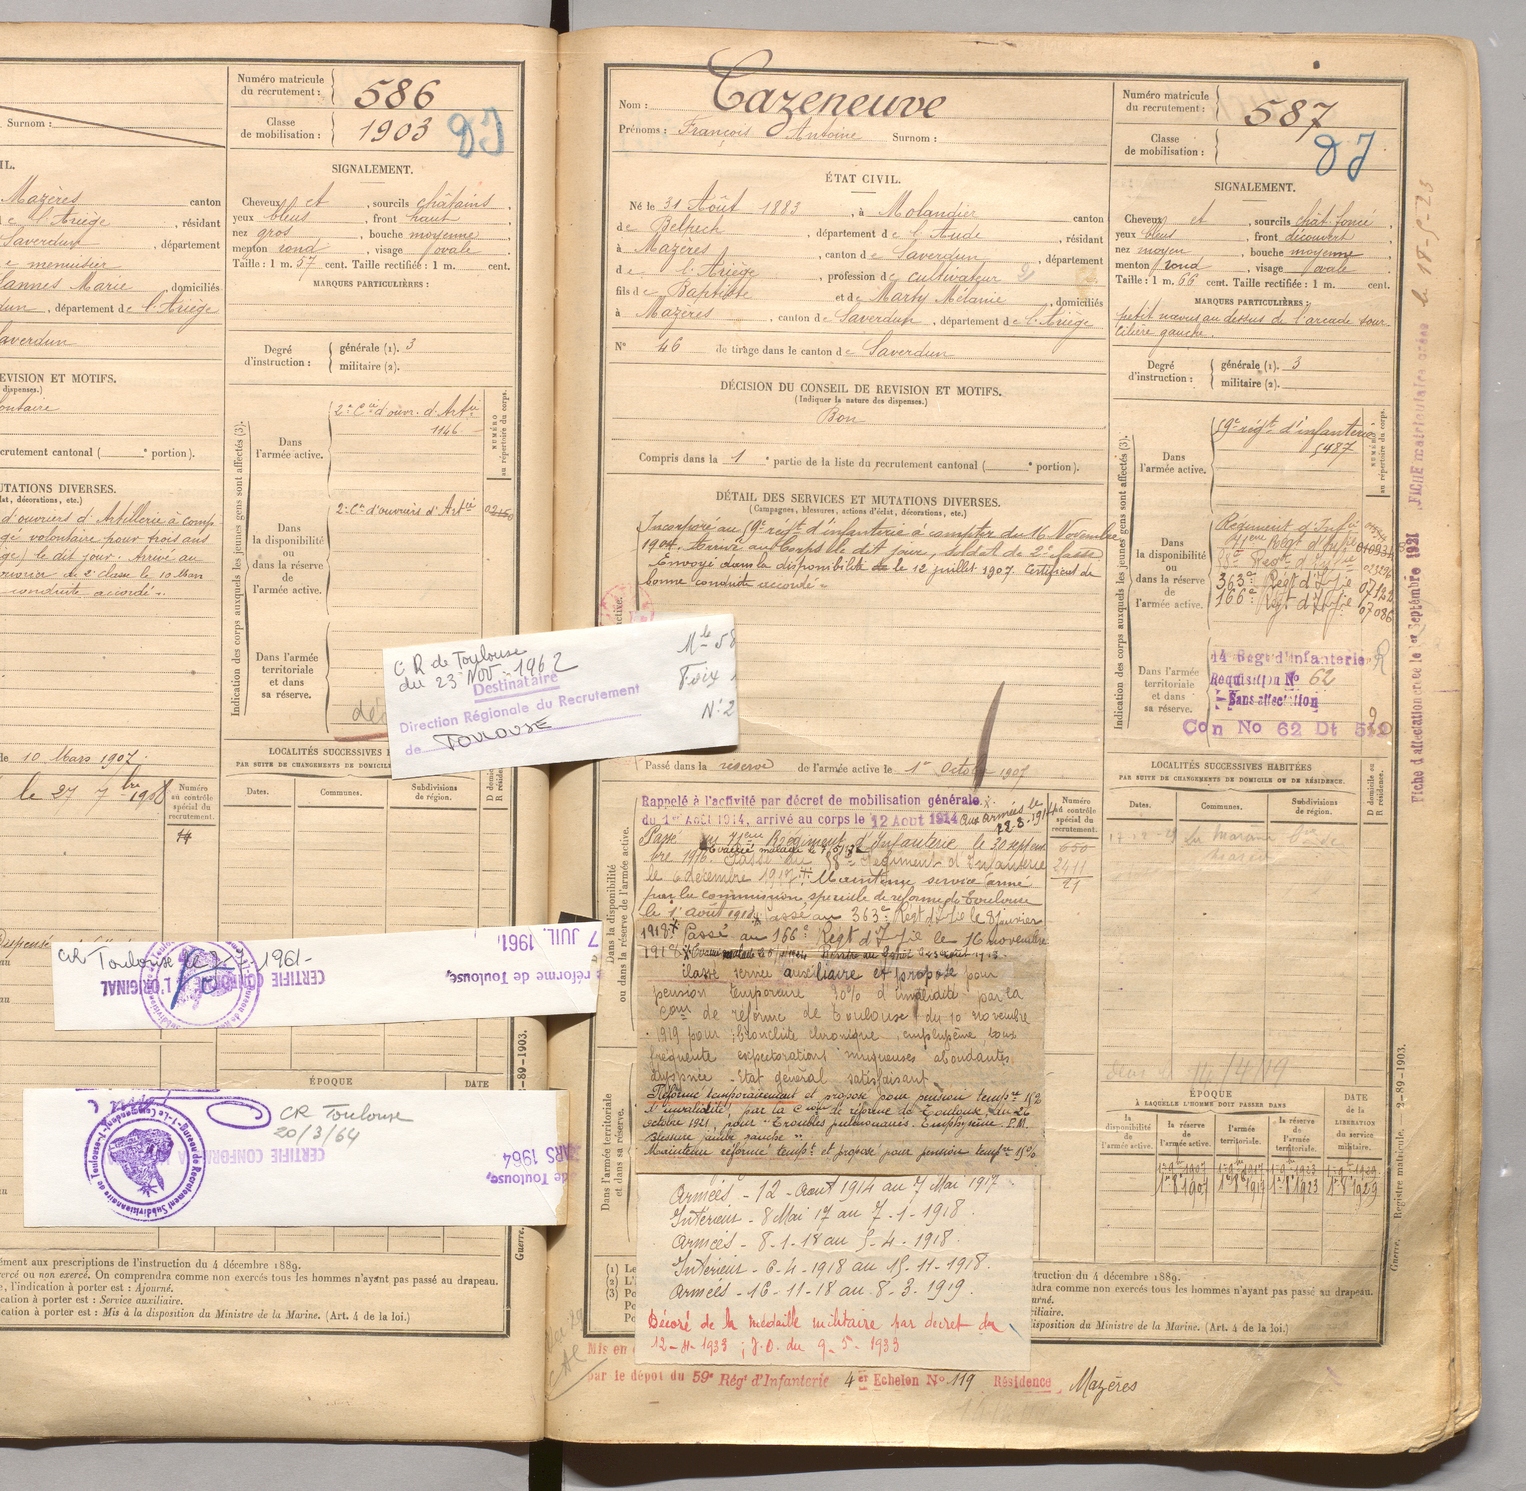 Numéro matricule
du recrutement :
586
Surnom :
Classe
de mobilisation :
1903
SIGNALEMENT.
Mazères canton
de l'Ariège , résidant
Saverdun , département
de menuisier
Lannes Marie , domiciliés
, département de l'Ariège
Saverdun
Cheveux et , sourcils châtains ,
yeux bleus , front haut ,
nez gros , bouche moyenne ,
menton rond , visage ovale
Taille : 1 m. 57 cent. Taille rectifiée : 1 m. cent.
MARQUES PARTICULIÈRES :
Degré
d'instruction :
générale (1). 3
militaire (2).
EVISION ET MOTIFS.
crutement cantonal ( e portion).
UTATIONS DIVERSES.
d'ouvriers d'Artillerie à comp
volontaire pour trois ans
le dit jour. Arrivé au
ouvrier de 2e classe le 10 Mars
conduite accordé
Indication des corps auxquels les jeunes gens sont affectés (3).
Dans
l'armée active.
2e Cie d'ouvr. d'Artie
1146
NUMÉRO
au répertoire du corps.
Dans
la disponibilité
ou
dans la réserve
de
l'armée active.
2e Cie d'ouvriers d'Artie
Dans l'armée
territoriale
et dans
sa réserve.
C R de Toulouse
du 23 NOV. 1962
Destinataire
Direction Régionale du Recrutement
de TOULOUSE
Mle 58
Foix
N° 2
le 10 Mars 1907
le 27 7bre 1908
Numéro
au contrôle
spécial du
recrutement.
LOCALITÉS SUCCESSIVES
PAR SUITE DE CHANGEMENTS DE DOMICILE
Dates.
Communes.
Subdivisions
de région.
Dispensé
CR Toulouse
1961
7 JUIL. 1961
CERTIFIÉ CONFORME
A L'ORIGINAL
e réforme de Toulouse,
ÉPOQUE
DATE
CR Toulouse
20/3/64
CERTIFIÉ CONFORME
MARS 1964
de Toulouse,
Bureau de Recrutement Subdivisionnaire de Toulouse
ément aux prescriptions de l'instruction du 4 décembre 1889.
ercé ou non exercé. On comprendra comme non exercés tous les hommes n'ayant pas passé au drapeau.
e, l'indication à porter est : Ajourné.
cation à porter est : Service auxiliaire.
cation à porter est : Mis à la disposition du Ministre de la Marine. (Art. 4 de la loi.)
Nom : Cazeneuve
Prénoms : François Antoine Surnom :
Numéro matricule
du recrutement :
587
Classe
de mobilisation :
ÉTAT CIVIL.
Né le 31 Août 1883 , à Molandier canton
de Belpech , département de l'Aude , résidant
à Mazères , canton de Saverdun , département
de l'Ariège , profession de cultivateur
fils de Baptiste et de Marty Mélanie , domiciliés
à Mazères , canton de Saverdun , département de l'Ariège
N° 46 de tirage dans le canton de Saverdun
SIGNALEMENT.
Cheveux et , sourcils chât foncé
yeux bleus , front découvert
nez moyen , bouche moyenne
menton rond , visage ovale
Taille : 1 m. 66 cent. Taille rectifiée : 1 m. cent.
MARQUES PARTICULIÈRES :
petit noevus au dessus de l'arcade sour
cilière gauche.
Degré
d'instruction :
générale (1). 3
militaire (2).
DÉCISION DU CONSEIL DE REVISION ET MOTIFS.
(Indiquer la nature des dispenses.)
Bon
Compris dans la 1e partie de la liste du recrutement cantonal ( e portion).
DÉTAIL DES SERVICES ET MUTATIONS DIVERSES.
(Campagnes, blessures, actions d'éclat, décorations, etc.)
Incorporé au 9e régt d'infanterie à compter du 16 Novembre
1904. Arrivé au Corps le dit jour, soldat de 2e classe
Envoyé dans la disponibilité le 12 juillet 1907. Certificat de
bonne conduite accordé
Passé dans la réserve de l'armée active le 1er Octobre 1907
Rappelé à l'activité par décret de mobilisation générale
du 1er Août 1914, arrivé au corps le 12 Août 1914 Aux Armées le
Passé au Régiment d'Infanterie le 30 septem
bre 1916. Passé au 88e Régiment d'Infanterie
le 6 décembre 1917. Maintenu service armé
par la commission spéciale de réforme de Toulouse
le 1er août 1918. Passé au 363e Régt d'Inf.ie le 8 janvier
1918. Passé au 166e Régt d'Inf.ie le 16 novembre
1918
Classé service auxiliaire et proposé pour
pension temporaire 30% d'invalidité par la
Com. de réforme de Toulouse du 10 novembre
1919 pour : bronchite chronique, emphysème, toux
fréquente expectorations muqueuses abondantes
dyspnée - Etat général satisfaisant
Réformé temporairement et proposé pour pension tempre
d'invalidité, par la Com de réforme de Toulouse du 26
octobre 1921, pour : Troubles pulmonaires. Emphysème.
Blessure jambe gauche
Maintenu réformé tempt et proposé pour pension tempre 15%
Armées - 12 - Août 1914 au 7 Mai 1917
Intérieur - 8 Mai 17 au 7 - 1 - 1918.
Armées - 8-1-18 au 5-4-1918
Intérieur - 6-4-1918 au 15-11-1918.
Armées - 16-11-18 au 8-3-1919.
Décoré de la médaille militaire par décret du
1933 ; J.O. du 9-5-1933
par le dépôt du 59e Régt d'Infanterie 4er Echelon N° 119 Résidence Mazères
Numéro
au contrôle
spécial du
recrutement.
650
2411
21
Dans la disponibilité
ou dans la réserve de l'armée active.
Dans l'armée territoriale
et dans sa réserve.
Indication des corps auxquels les jeunes gens sont affectés (3).
Dans
l'armée active.
9e régt d'infanterie
5487
Dans
la disponibilité
ou
dans la réserve
de
l'armée active.
Régiment d'Infie
88e Régt d'Infie
363e Régt d'Infie
166e Régt d'Infie
Dans l'armée
territoriale
et dans
sa réserve.
14 Reg d'infanterie
Requisition N° 62
Sans affectation
Con No 62 Dt
LOCALITÉS SUCCESSIVES HABITÉES
PAR SUITE DE CHANGEMENTS DE DOMICILE OU DE RÉSIDENCE.
Dates.
Communes.
Subdivisions
de région.
D domicile ou
R résidence.
ÉPOQUE
À LAQUELLE L'HOMME DOIT PASSER DANS
DATE
de la
LIBÉRATION
du service
militaire.
la
disponibilité
de
l'armée active.
la réserve
de
l'armée active.
l'armée
territoriale.
la réserve
de
l'armée
territoriale.
truction du 4 décembre 1889.
dra comme non exercés tous les hommes n'ayant pas passé au drapeau.
rné.
iliaire.
disposition du Ministre de la Marine. (Art. 4 de la loi.)
Guerre. Registre matricule. 2-89-1903.
Fiche d'affectation créée le 1er Septembre 1921
FICHE matriculaire créée le 18-5-23